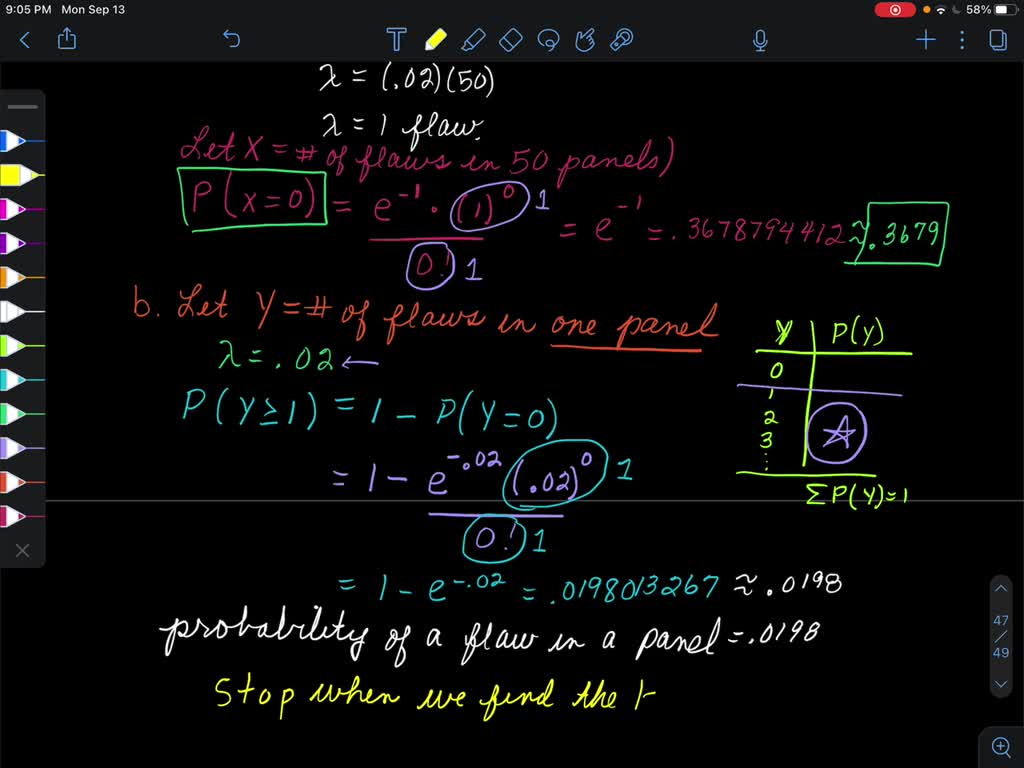 9:05 PM Mon Sep 13
58%
λ = (.02)(50)
λ = 1 flaw.
Let X = # of flaws in 50 panels)
P(X=0) = e^-1 · (1)^0 1 / 0! 1 = e^-1 = .3678794412 ≈ .3679
b. Let Y = # of flaws in one panel
λ = .02 ←
P(Y≥1) = 1 - P(Y=0)
= 1 - e^-.02 (.02)^0 1 / 0! 1
= 1 - e^-.02 = .0198013267 ≈ .0198
probability of a flaw in a panel = .0198
Stop when we find the
Y P(Y)
0
1
2
3
⋮
ΣP(Y)=1
47
/
49